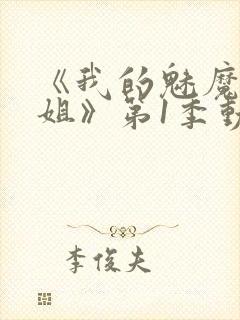 《我的魅魔
姐》第1季動
李俊夫